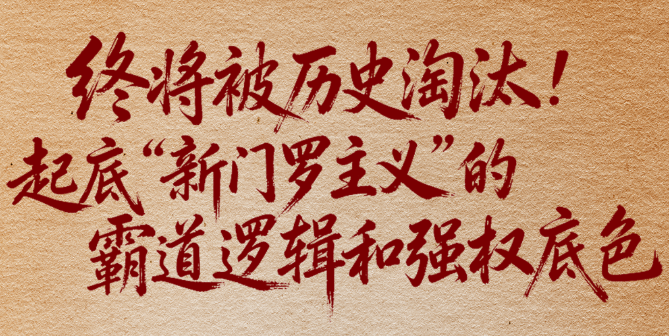 终将被历史淘汰！
起底“新门罗主义”的
霸道逻辑和强权底色